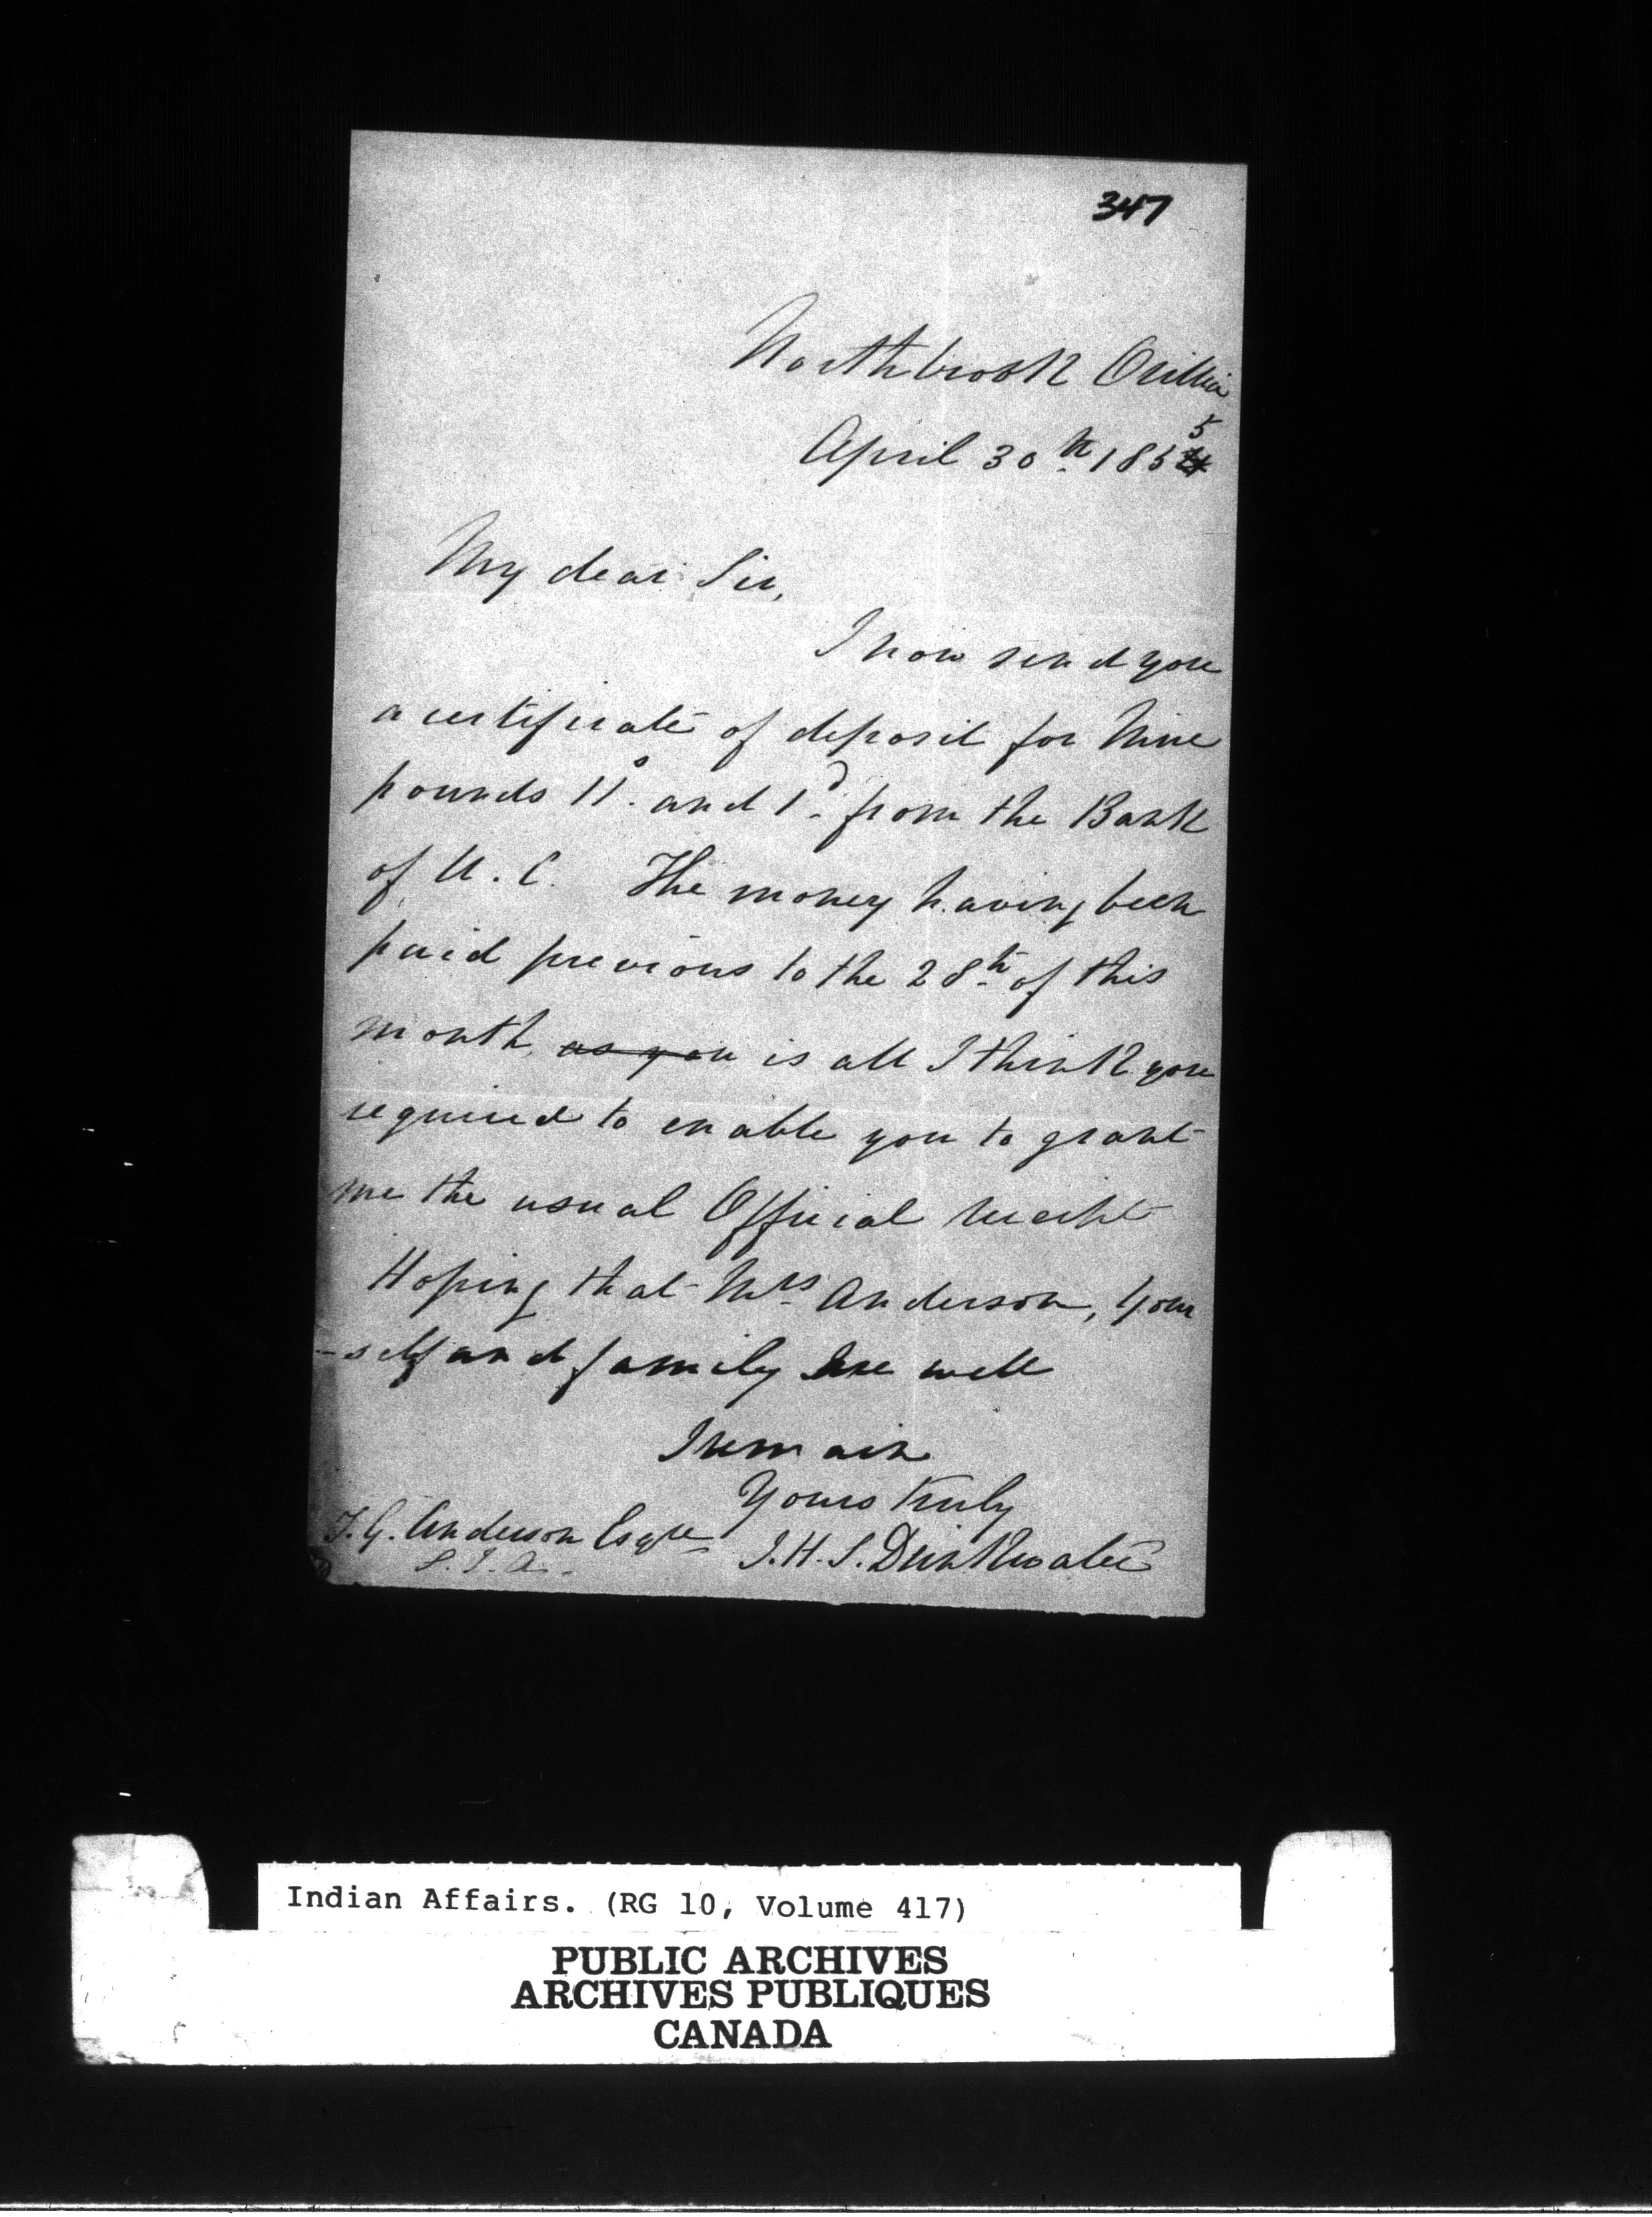 347
Northbrook Orillia
April 30th 185~~4~~ 5
My dear Sir,
I now send you
a certificate of deposit for Nine
pounds 11s. and 1d. from the Bank
of U. C. The money having been
paid previous to the 28th of this
month, ~~as you~~ is all I think you
required to enable you to grant
me the usual Official receipt
Hoping that Mrs Anderson, your
-self and family are well
I remain
Yours truly
T. G. Anderson Esqre J. H. S. Drinkwater
S. I. A.
Indian Affairs. (RG 10, Volume 417)
PUBLIC ARCHIVES
ARCHIVES PUBLIQUES
CANADA